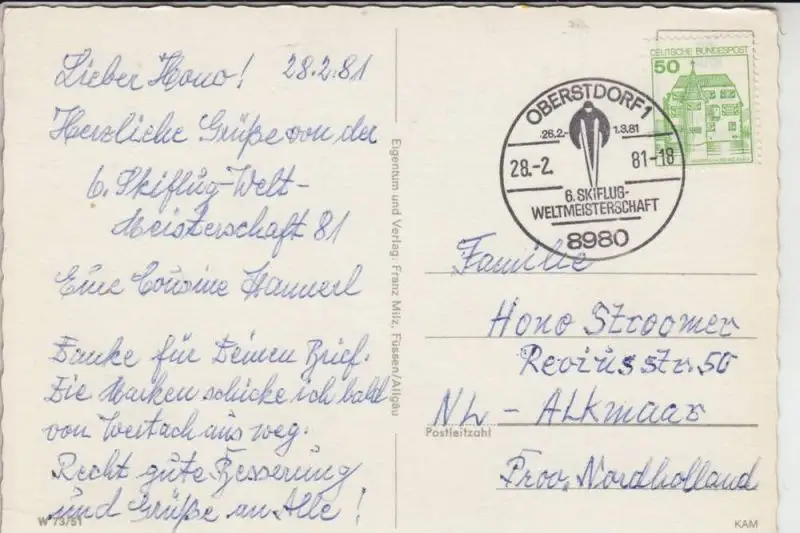 Lieber Hono! 28.2.81
Herzliche Grüße von der
6. Skiflug-Welt-
Meisterschaft 81
Eure Cousine Hannerl
Danke für Deinen Brief.
Die Marken schicke ich bald
von Wertach aus weg.
Recht gute Besserung
und Grüße an Alle!
W 73/51
Eigentum und Verlag: Franz Milz, Füssen/Allgäu
DEUTSCHE BUNDESPOST
50
OBERSTDORF 1
26.2.- 1.3.81
28.-2. 81-18
6. SKIFLUG-
WELTMEISTERSCHAFT
8980
Familie
Hono Stroomer
Reviusstr. 50
NL - ALKMAAR
Postleitzahl
Prov. Nordholland
KAM